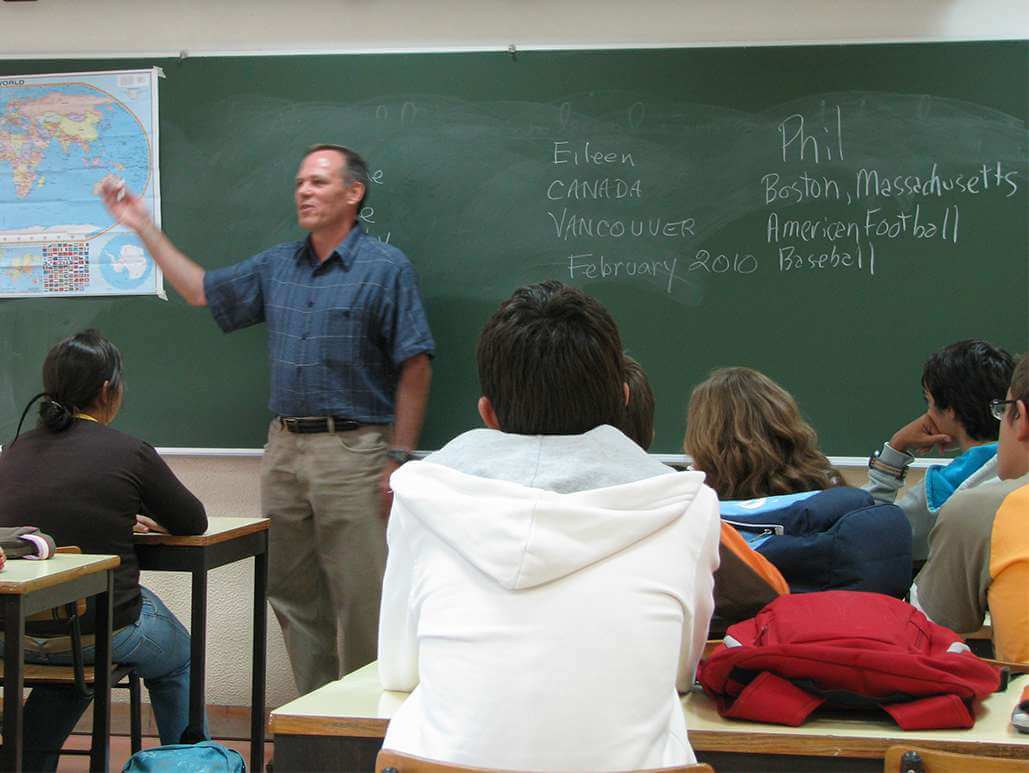 WORLD
Eileen
CANADA
VANCOUVER
February 2010
Phil
Boston, Massachusetts
American Football
Baseball